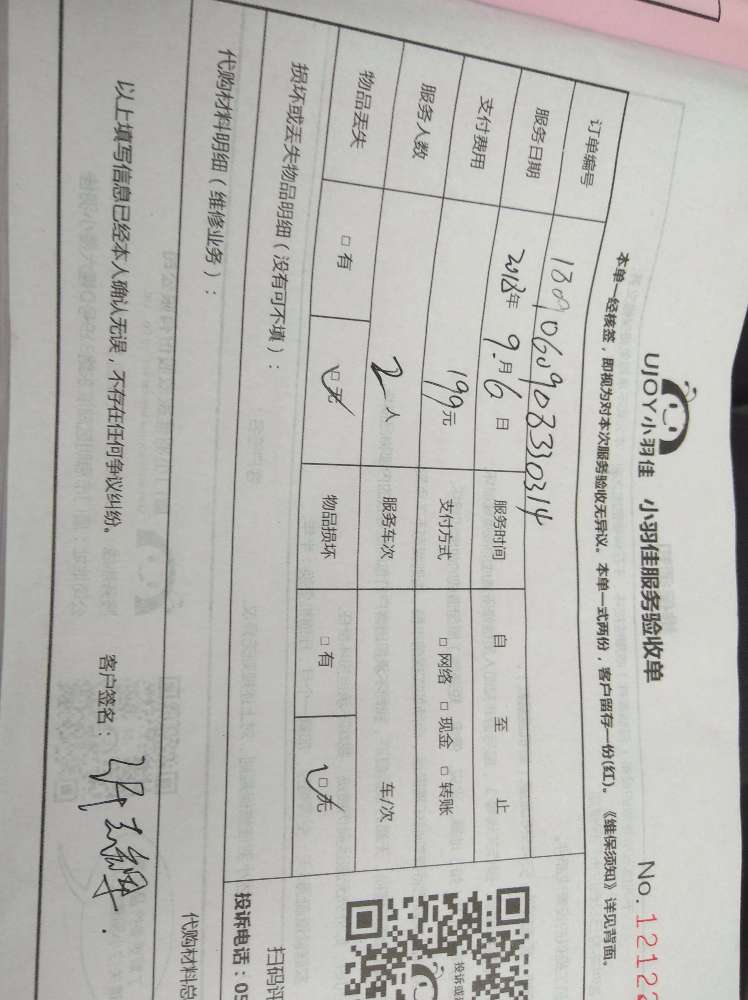 UJOY小羽佳 小羽佳服务验收单
No. 1212
本单一经核签，即视为对本次服务验收无异议。本单一式两份，客户留存一份(红)。《维保须知》详见背面。
订单编号 1809060908330314
服务日期 2018年 9月 6日 服务时间 自 至 止
支付费用 199元 支付方式 □网络 □现金 □转账
服务人数 2人 服务车次 车/次
物品丢失 □有 ☑无 物品损坏 □有 ☑无
损坏或丢失物品明细（没有可不填）：
代购材料明细（维修业务）：
代购材料总
以上填写信息已经本人确认无误，不存在任何争议纠纷。 客户签名：
投诉或
扫码评
投诉电话：05